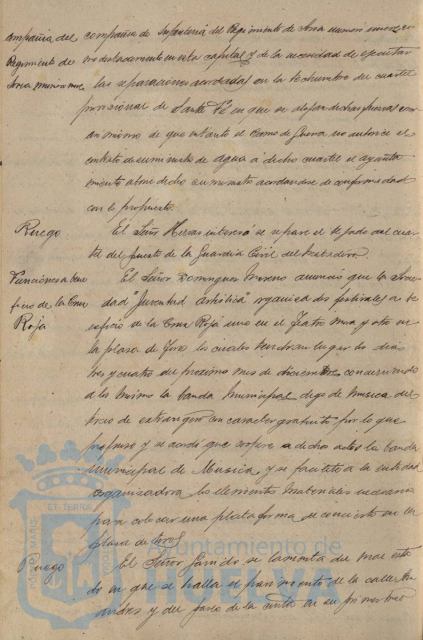 compañia del compañia de Infanteria del Regimiento de Soria numero nueve en
Regimiento de destacamento en esta capital y de la necesidad de ejecutar
Soria numero nueve las reparaciones acordadas en la techumbre del cuartel
provisional de Santa Fé en que se alojan dichas fuerzas con
an mismo de que en tanto el Ramo de Guerra no autorice el
contrato de suministro de agua a dicho cuartel el ayunta
miento abone dicho suministro acordandose de conformidad
con lo propuesto.
Ruego El Señor interesa se repare el tejado del cuar
tel del puesto de la Guardia Civil del Matadero.
Funciones a bene El Señor Dominguez Moreno anunció que la Socie
ficio de la Cruz dad Juventud Artistica organiza dos festivales a be
Roja neficio de la Cruz Roja uno en el Teatro Mora y otro en
la plaza de Toros los cuales tendran lugar los dias
tres y cuatro del proximo mes de diciembre concurriendo
a los mismos la banda Municipal de Musica del
de extrangero con caracter gratuito, por lo que
propuso y se acordó que a dichos actos la banda
Municipal de Musica y se facilite a la entidad
organizadora los elementos materiales necesarios
para colocar una plataforma de concierto en la
plaza de Toros.
Ruego El Señor Garrido se lamenta del mal esta
do en que se halla el pavimento de la calle San
Andres y del Paseo de la Cinta en su primer tro
SIGILLUM
PORTUS MARIS
ET TERRAE
Ayuntamiento de
HUELVA